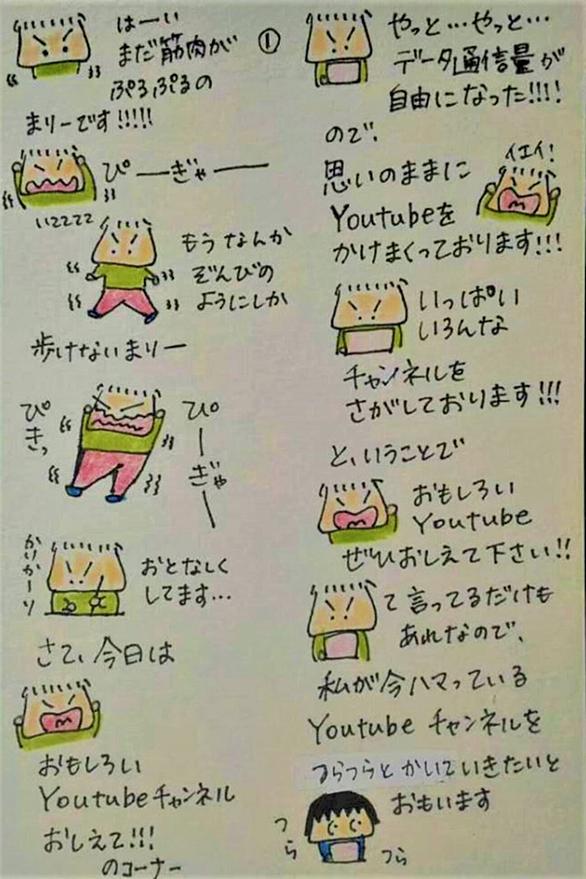 ①
はーい
まだ筋肉が
ぷるぷるの
まりーです!!!!!
ぴーーぎゃーーー
もうなんか
ぞんびの
ようにしか
歩けないまりー
ぴきっ
ぴーぎゃー
かりかーり
おとなしく
してます…
さて、今日は
おもしろい
Youtubeチャンネル
おしえて!!!
のコーナー
やっと…やっと…
データ通信量が
自由になった!!!!
ので、
思いのままに
イエイ!
Youtubeを
かけまくっております!!!
いっぱい
いろんな
チャンネルを
さがしております!!!
と、いうことで
おもしろい
Youtube
ぜひおしえて下さい!!
て言ってるだけも
あれなので、
私が今ハマっている
Youtube チャンネルを
つらつらと かいていきたいと
おもいます
つら
つら